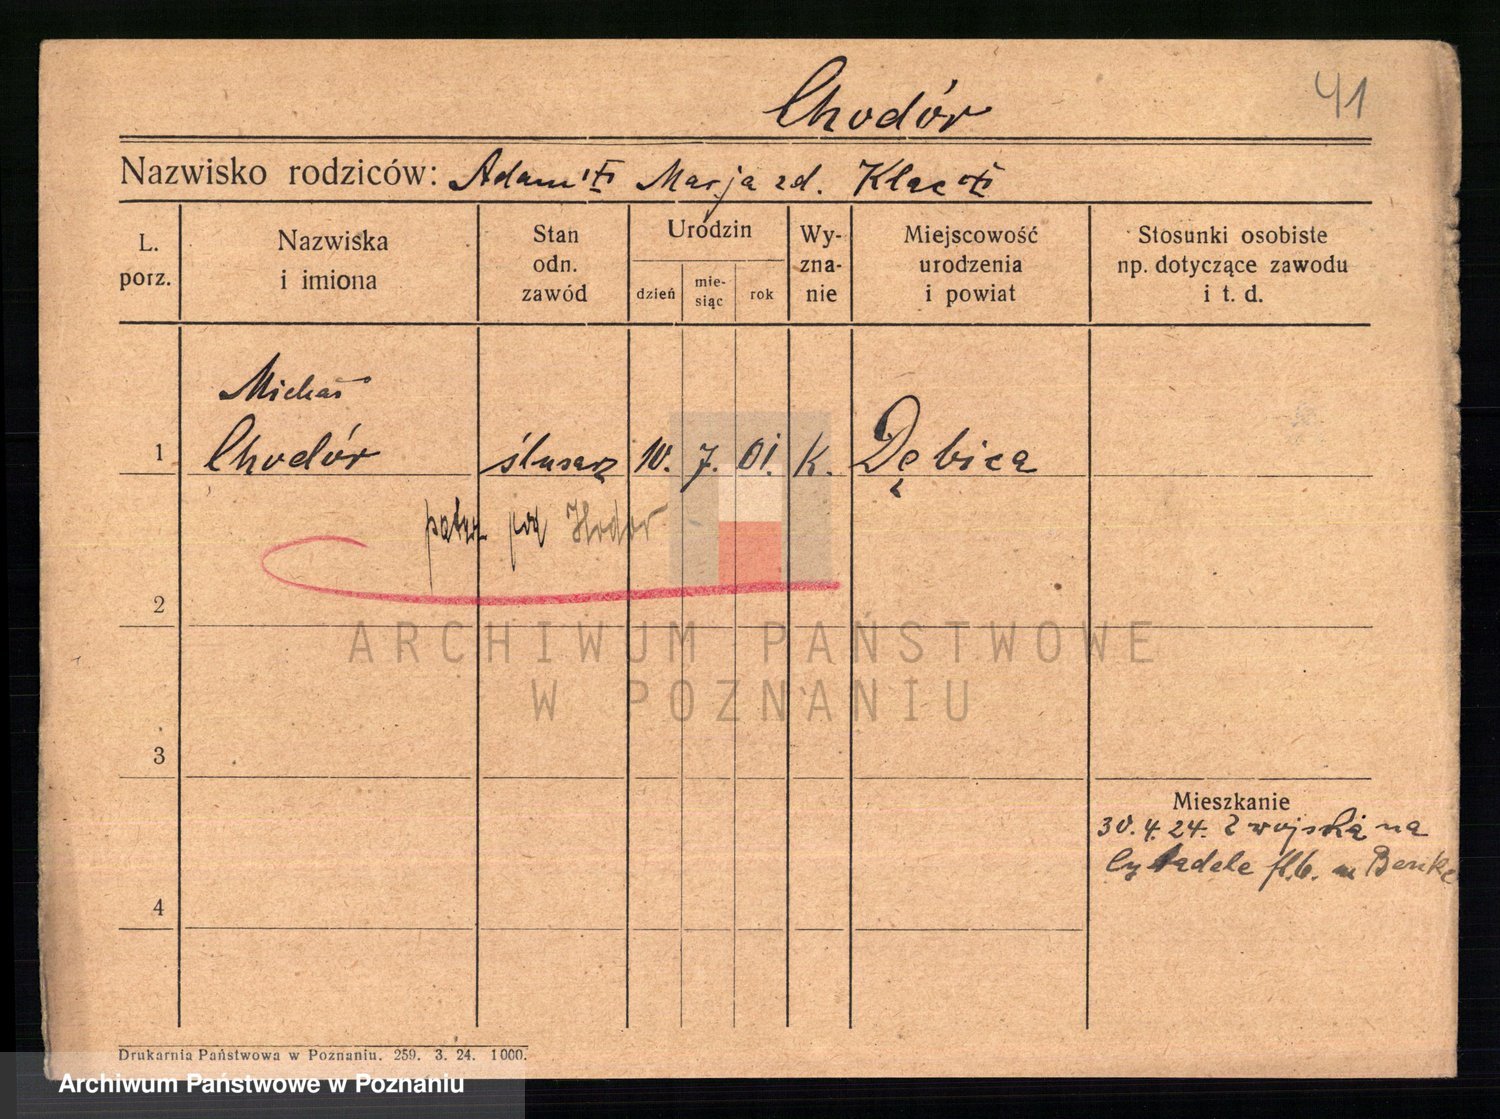 41
Chodór
Nazwisko rodziców: Adam Marja zd. Klac
L. porz.
Nazwiska i imiona
Stan odn. zawód
Urodzin
dzień
mie-siąc
rok
Wy-zna-nie
Miejscowość urodzenia i powiat
Stosunki osobiste np. dotyczące zawodu i t. d.
Michał
1 Chodór ślusarz 10. 7. 01. K. Dębica
patrz pod Hodor
2
3
4
Mieszkanie
30. 4. 24. z wojska na
Cytadele fl. 6. Benke
ARCHIWUM PAŃSTWOWE
W POZNANIU
Drukarnia Państwowa w Poznaniu. 259. 3. 24. 1000.
Archiwum Państwowe w Poznaniu